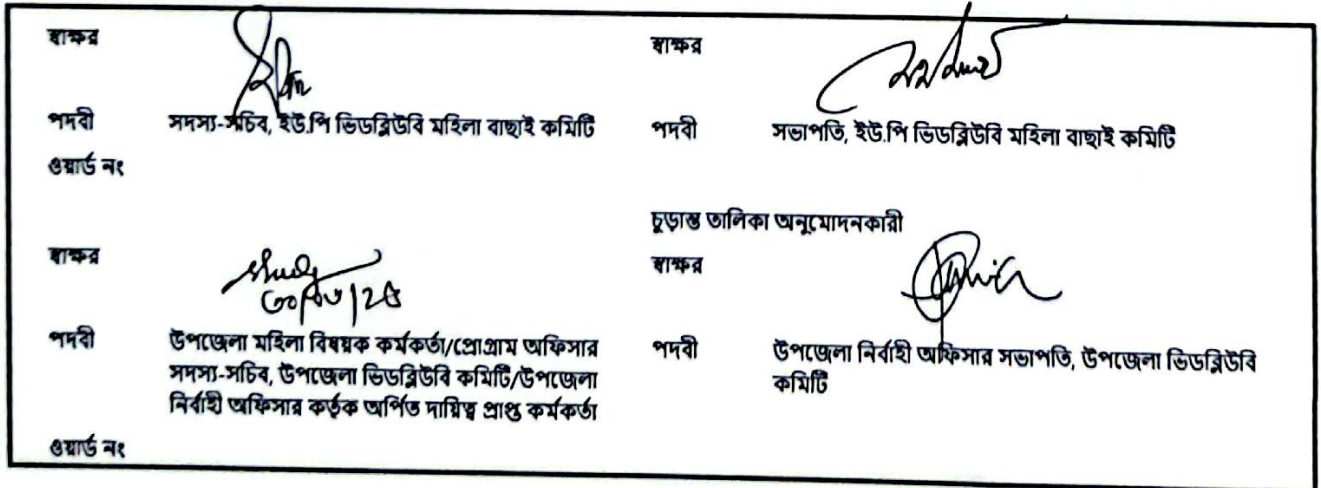 স্বাক্ষর
স্বাক্ষর
পদবী সদস্য-সচিব, ইউ.পি ভিডব্লিউবি মহিলা বাছাই কমিটি
পদবী সভাপতি, ইউ.পি ভিডব্লিউবি মহিলা বাছাই কমিটি
ওয়ার্ড নং
চুড়ান্ত তালিকা অনুমোদনকারী
স্বাক্ষর
স্বাক্ষর
পদবী উপজেলা মহিলা বিষয়ক কর্মকর্তা/প্রোগ্রাম অফিসার
সদস্য-সচিব, উপজেলা ভিডব্লিউবি কমিটি/উপজেলা
নির্বাহী অফিসার কর্তৃক অর্পিত দায়িত্ব প্রাপ্ত কর্মকর্তা
পদবী উপজেলা নির্বাহী অফিসার সভাপতি, উপজেলা ভিডব্লিউবি
কমিটি
ওয়ার্ড নং